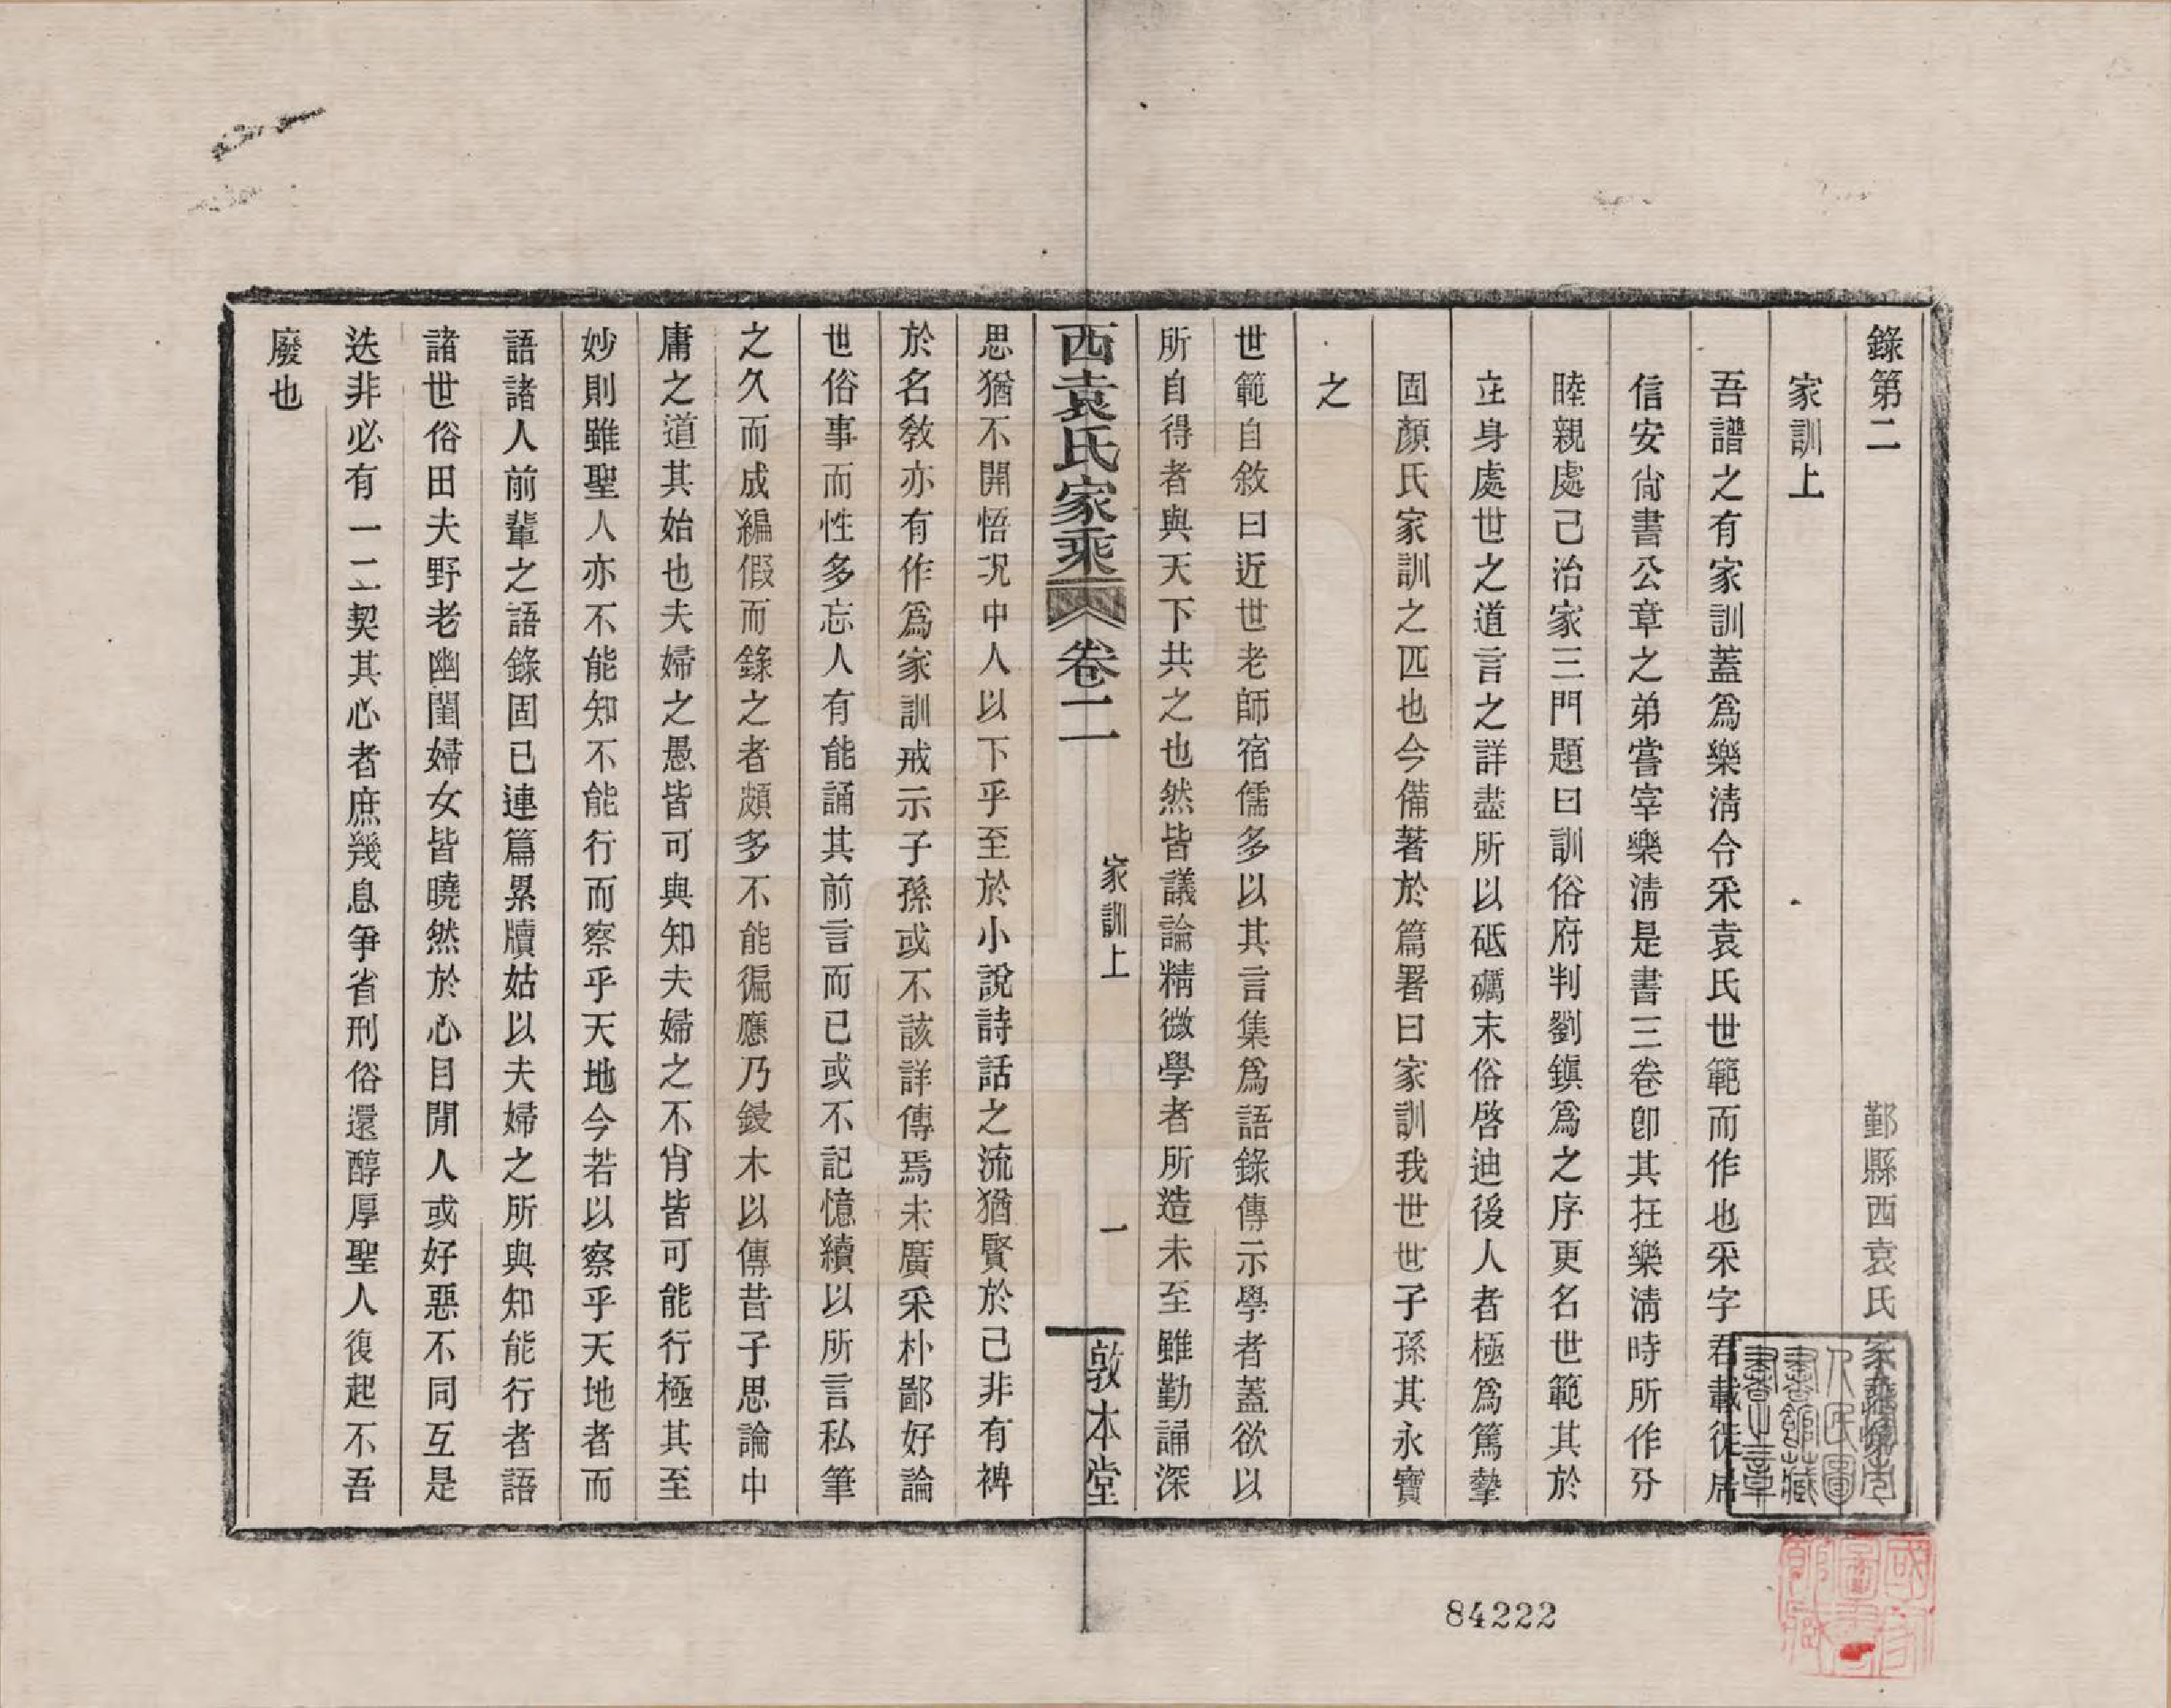 錄第二　鄞縣西袁氏家乘
家訓上
吾譜之有家訓蓋爲樂淸令采袁氏世範而作也采字君載徙居
信安尙書公章之弟嘗宰樂淸是書三卷卽其在樂淸時所作分
睦親處己治家三門題曰訓俗府判劉鎭爲之序更名世範其於
立身處世之道言之詳盡所以砥礪末俗啓迪後人者極爲篤摯
固顏氏家訓之匹也今備著於篇署曰家訓我世世子孫其永寶
之
世範自敘曰近世老師宿儒多以其言集爲語錄傳示學者蓋欲以
所自得者與天下共之也然皆議論精微學者所造未至雖勤誦深
西袁氏家乘　卷二　家訓上　一　敦本堂
思猶不開悟況中人以下乎至於小說詩話之流猶賢於己非有裨
於名敎亦有作爲家訓戒示子孫或不該詳傳焉未廣采朴鄙好論
世俗事而性多忘人有能誦其前言而已或不記憶續以所言私筆
之久而成編假而錄之者頗多不能徧應乃鋟木以傳昔子思論中
庸之道其始也夫婦之愚皆可與知夫婦之不肖皆可能行極其至
妙則雖聖人亦不能知不能行而察乎天地今若以察乎天地者而
語諸人前輩之語錄固已連篇累牘姑以夫婦之所與知能行者語
諸世俗田夫野老幽閨婦女皆曉然於心目閒人或好惡不同互是
迭非必有一二契其心者庶幾息爭省刑俗還醇厚聖人復起不吾
廢也
人民圖
書館藏
書之章
國家
圖書
館藏
84222